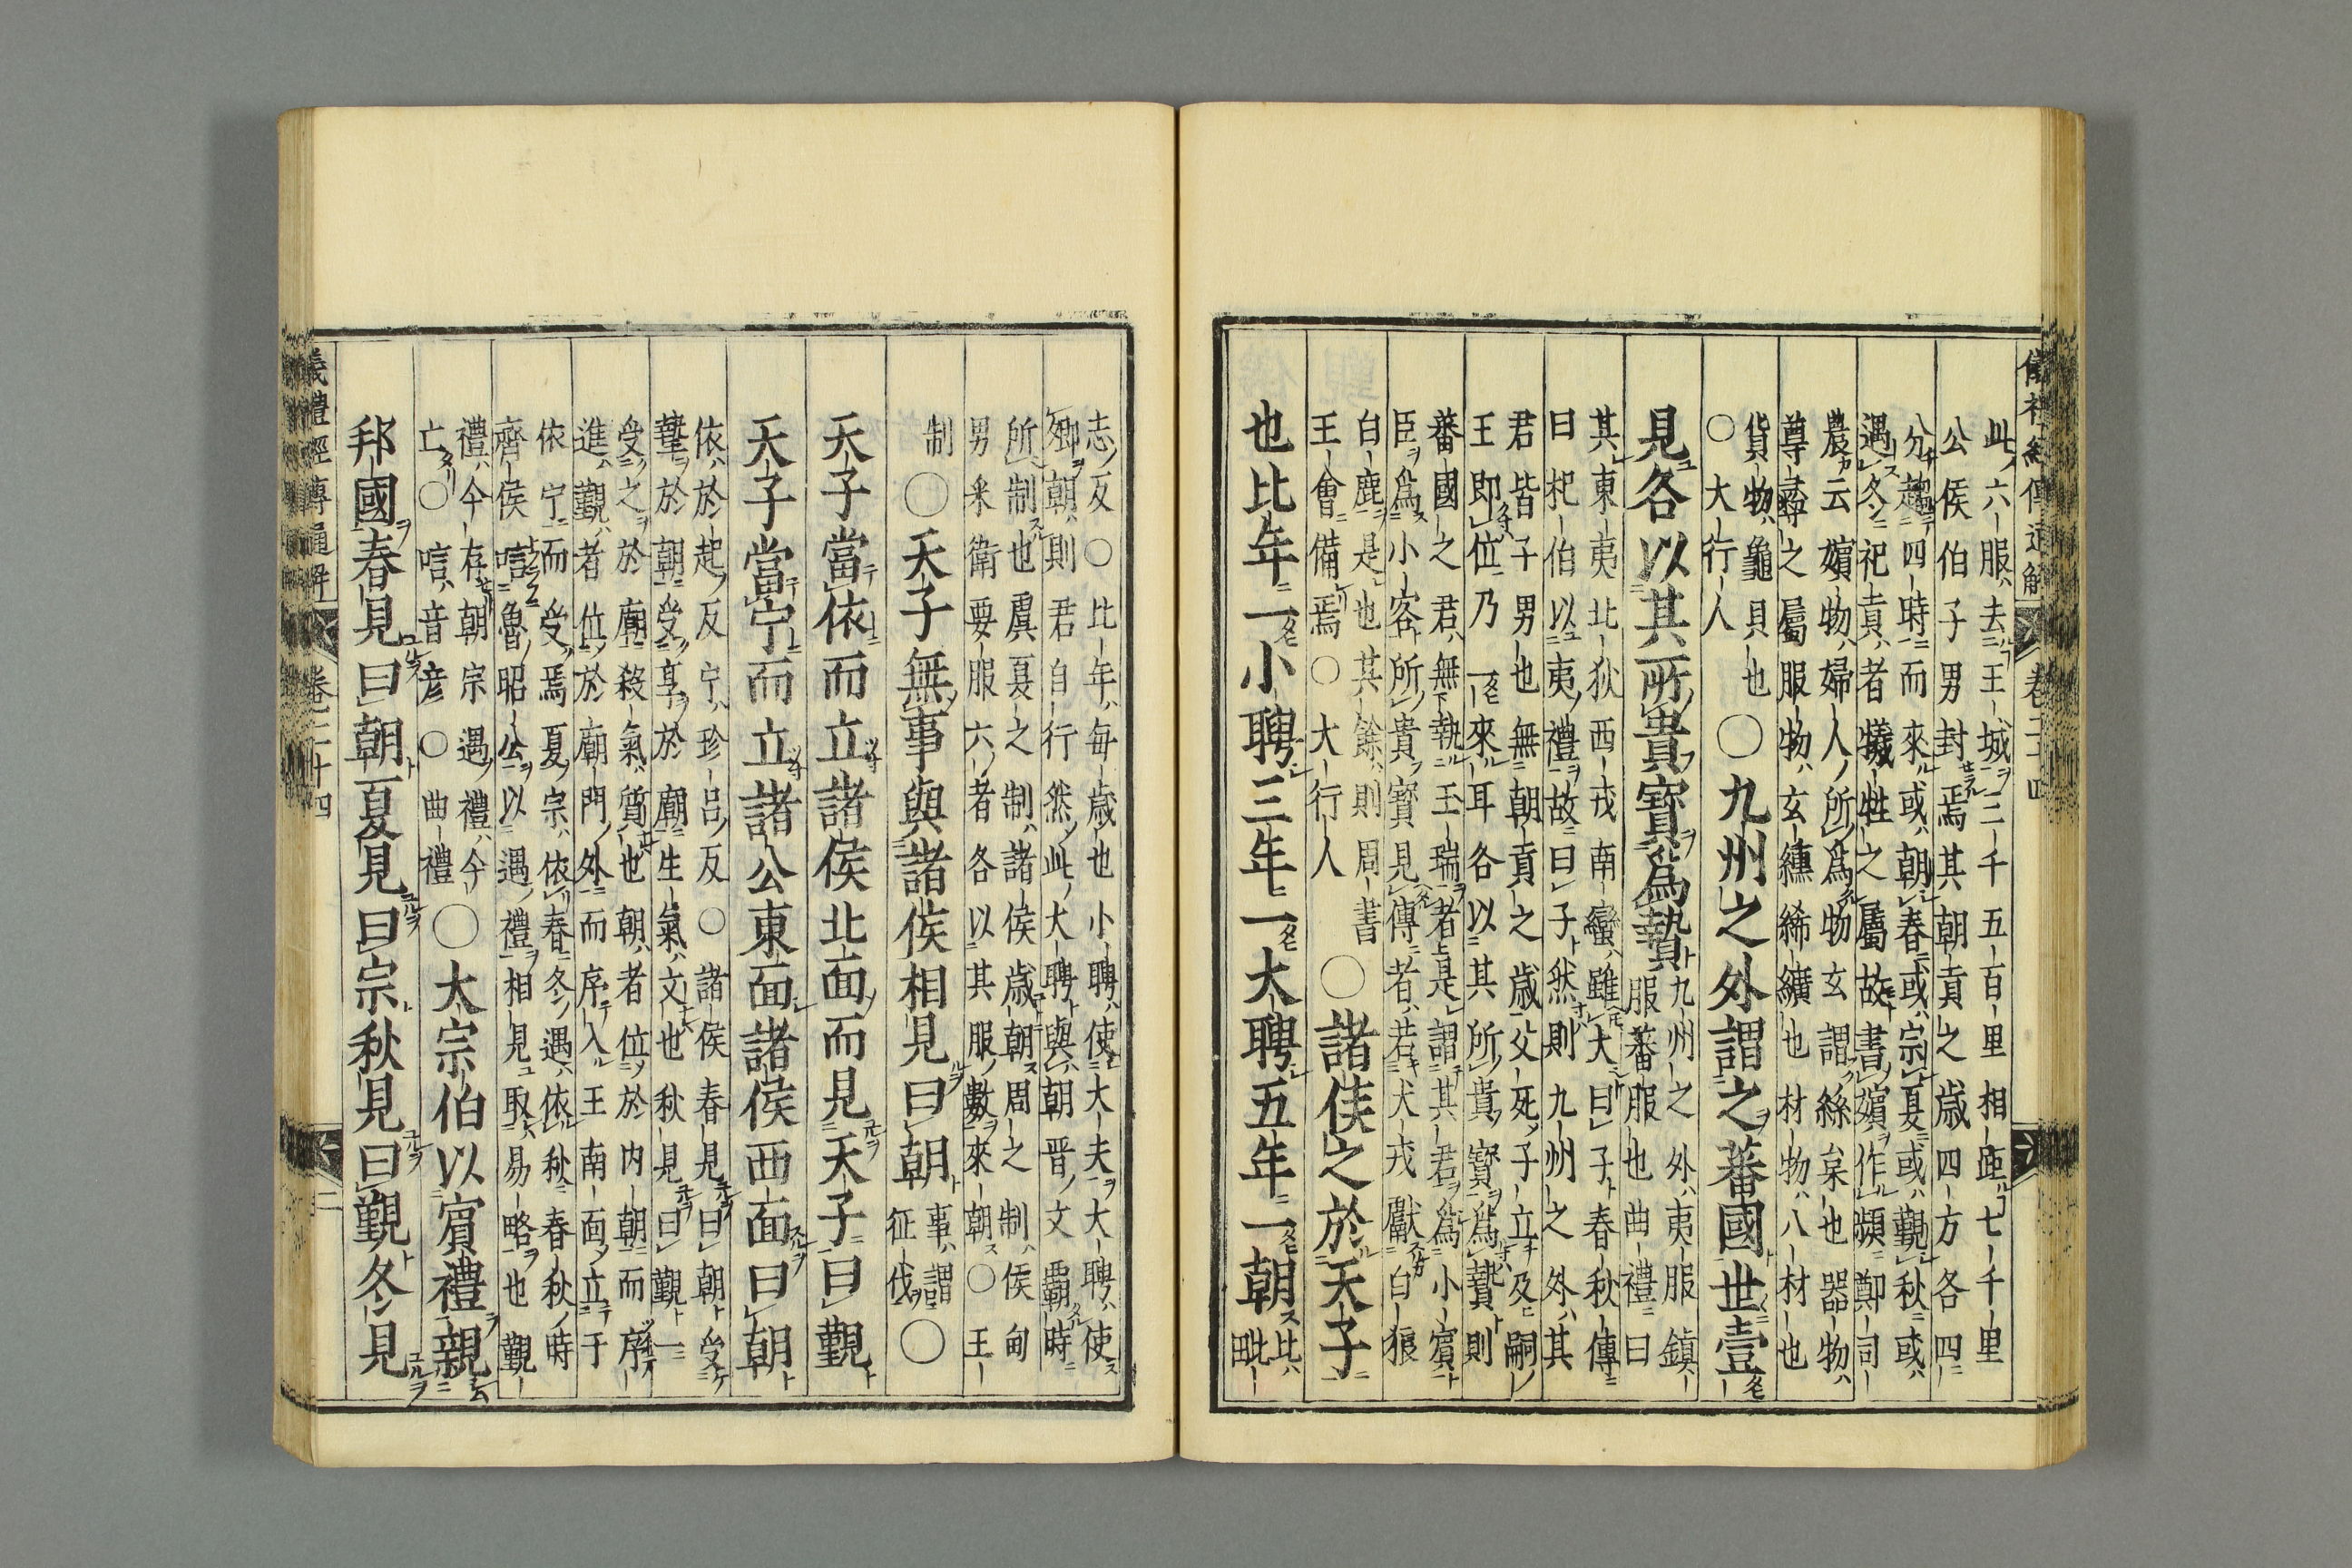 儀禮經傳通解　卷二十四
此六服去王城三千五百里相距七千里
公侯伯子男封焉其朝貢之歲四方各四
分趨四時而來或朝春或宗夏或覲秋或
遇冬祀貢者犧牲之屬故書嬪作頻鄭司
農云嬪物婦人所爲物玄謂絲枲也器物
尊彝之屬服物玄纁絺纊也材物八材也
貨物龜貝也
○大行人
○九州之外謂之蕃國世壹
見各以其所貴寶爲贄
九州之外夷服鎮
服蕃服也曲禮曰
其東夷北狄西戎南蠻雖大曰子春秋傳
曰杞伯以夷禮故曰子然則九州之外其
君皆子男也無朝貢之歲父死子立及嗣
王即位乃一來耳各以其所貴寶爲贄則
蕃國之君無執玉瑞者是謂其君爲小賓
臣爲小客所貴寶見傳者若犬戎獻白狼
白鹿是也其餘則周書
王會備焉○大行人
○諸侯之於天子
也比年一小聘三年一大聘五年一朝
比毗
志反○比年每歲也小聘使大夫大聘使
卿朝則君自行然此大聘與朝晉文霸時
所制也虞夏之制諸侯歲朝周之制侯甸
男采衛要服六者各以其服數來朝○王
制
○天子無事與諸侯相見曰朝
事謂
征伐
○
天子當依而立諸侯北面而見天子曰覲
天子當宁而立諸公東面諸侯西面曰朝
依於起反宁珍呂反○諸侯春見曰朝受
摯於朝受享於廟生氣文也秋見曰覲一
受之於廟殺氣質也朝者位於內朝而序
進覲者位於廟門外而序入王南面立于
依宁而受焉夏宗依春冬遇依秋春秋時
齊侯唁魯昭公以遇禮相見取易略也覲
禮今存朝宗遇禮今
亡○唁音彥○曲禮
○大宗伯以賓禮親
邦國春見曰朝夏見曰宗秋見曰覲冬見
儀禮經傳通解　卷二十四　二